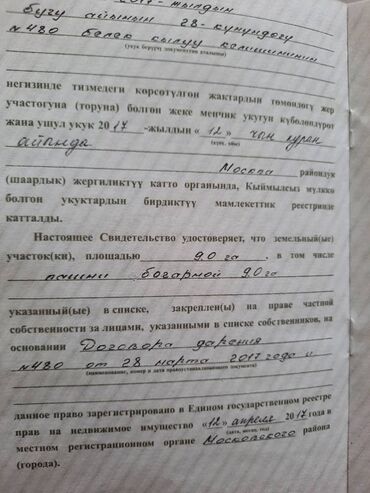 2017-жылдын
бугу айынын 28-күнүндөгү
№ 480 белек кылуу келишиминин
(укук берүүчү документтин аталышы)
негизинде тизмедеги көрсөтүлгөн жактардын төмөндөгү жер
участогуна (торуна) болгон жеке менчик укугун күбөлөндүрөт
жана ушул укук 2017 -жылдын «12» чын куран
айында
(күнү, айы)
Москва райондук
(шаардык) жергиликтүү катто органында, Кыймылсыз мүлккө
болгон укуктардын бирдиктүү мамлекеттик реестринде
катталды.
Настоящее Свидетельство удостоверяет, что земельный(ые)
участок(ки), площадью 9,0 га, в том числе
пашни богарной 9,0 га
указанный(ые) в списке, закреплен(ы) на праве частной
собственности за лицами, указанными в списке собственников, на
основании Договора дарения
№480 от 28 марта 2017 года и
(наименование, номер и дата правоустанавливающего документа)
данное право зарегистрировано в Едином государственном реестре
прав на недвижимое имущество «12» апреля 2017 года в
(дата, месяц, год)
местном регистрационном органе Московского района
(города).